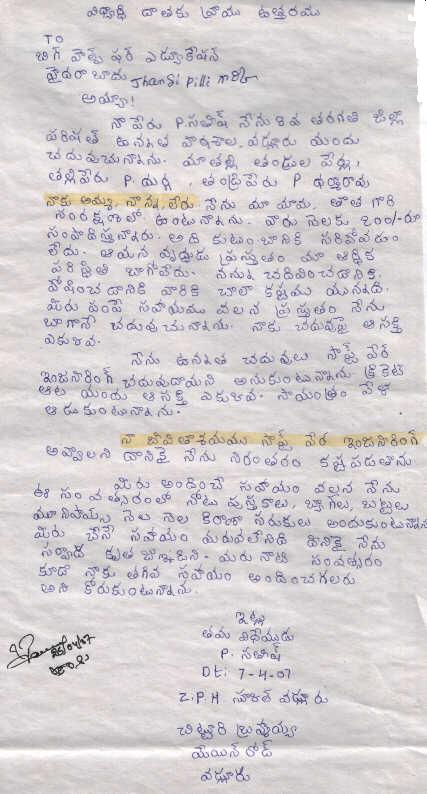 విద్యార్థి దాతకు వ్రాయు ఉత్తరము
TO
బిగ్ హెల్ప్ ఫర్ ఎడ్యుకేషన్
హైదరాబాదు Jhansi Pilli గారికి
అయ్యా!
నా పేరు P. సతీష్ నేను 8వ తరగతి జిల్లా
పరిషత్ ఉన్నత పాఠశాల, వడ్లూరు యందు
చదువుచున్నాను. మా తల్లి తండ్రుల పేర్లు,
తల్లిపేరు P. , తండ్రిపేరు P
నాకు అమ్మ, నాన్న లేరు. నేను మా మామ్మ, తాత గారి
సంరక్షణలో ఉంటున్నాను. వారు నెలకు 200/-రూ
సంపాదిస్తున్నారు. అది కుటుంబానికి సరిపోవడం
లేదు. ఆయన వృద్దుడు ప్రస్తుతం మా ఆర్థిక
పరిస్థితి బాగోలేదు. నన్ను చదివించడానికి,
పోషించడానికి వారికి చాలా కష్టము యున్నది.
మీరు పంపే సహాయము వలన ప్రస్తుతం నేను
బాగానే చదువుచున్నాను. నాకు చదువుపై ఆసక్తి
ఎక్కువ.
నేను ఉన్నత చదువులు సాఫ్ట్ వేర్
ఇంజనీరింగ్ చదువుదామని అనుకుంటున్నాను క్రికెట్
ఆట యందు ఆసక్తి ఎక్కువ. సాయంత్రం వేళ
ఆడుకుంటున్నాను.
నా జీవితాశయము సాఫ్ట్ వేర్ ఇంజనీరింగ్
అవ్వాలని దానికై నేను నిరంతరం కష్టపడతాను
మీరు అందించే సహాయం వల్లన నేను
ఈ సంవత్సరంలో నోటు పుస్తకాలు, బ్యాగ్‌లు, బుట్టలు
యూనిఫామ్స్ నెల నెల కిరాణా సరుకులు అందుకుంటున్నాను
మీరు చేసే సహాయం మరువలేనిది దీనికై నేను
సర్వదా కృతజ్ఞుడిని. మరు నాటి సంవత్సరం
కూడా నాకు తగిన సహాయం అందించగలరు
అని కోరుకుంటున్నాను.
ఇట్లు
తమ విధేయుడు
P. సతీష్
Dt: 7-4-07
Z.P.H. స్కూల్ వడ్లూరు
చిట్టూరి
మెయిన్ రోడ్
వడ్లూరు